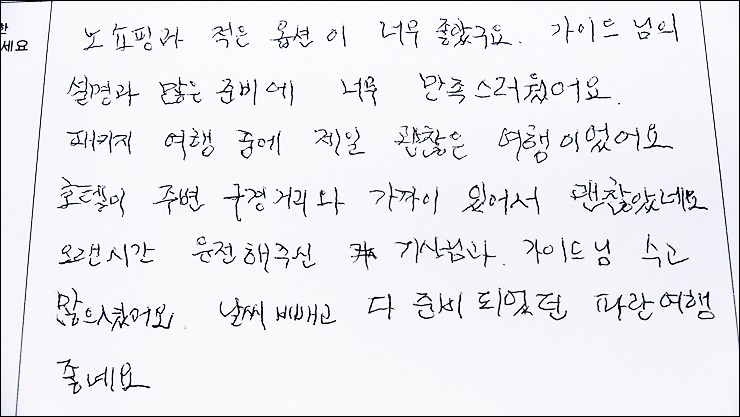 한
세요
노쇼핑과 적은 옵션이 너무 좋았구요. 가이드님의
설명과 많은 준비에 너무 만족스러웠어요.
패키지 여행 중에 제일 괜찮은 여행이었어요
호텔이 주변 구경거리와 가까이 있어서 괜찮았네요
오랜시간 운전해주신 기사님과 가이드님 수고
많으셨어요. 날씨 빼고 다 준비되었던 파란여행
좋네요